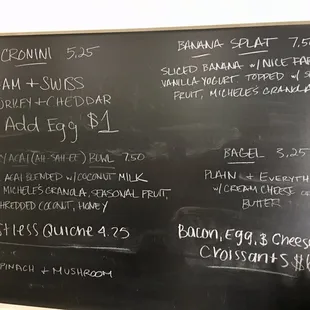 CRONINI 5.25
AM + SWISS
URKEY + CHEDDAR
Add Egg $1
ACAI (AH-SAH-EE) BOWL 7.50
ACAI BLENDED W/ COCONUT MILK
MICHELE'S GRANOLA, SEASONAL FRUIT,
HREDDED COCONUT, HONEY
TLESS QUICHE 4.25
PINACH + MUSHROOM
BANANA SPLAT 7.5
SLICED BANANA W/ NICE FA
VANILLA YOGURT TOPPED W/ S
FRUIT, MICHELE'S GRANOLA
BAGEL 3.25
PLAIN + EVERYTH
W/ CREAM CHEESE OR
BUTTER
Bacon, Egg, $ Cheese
Croissants $6